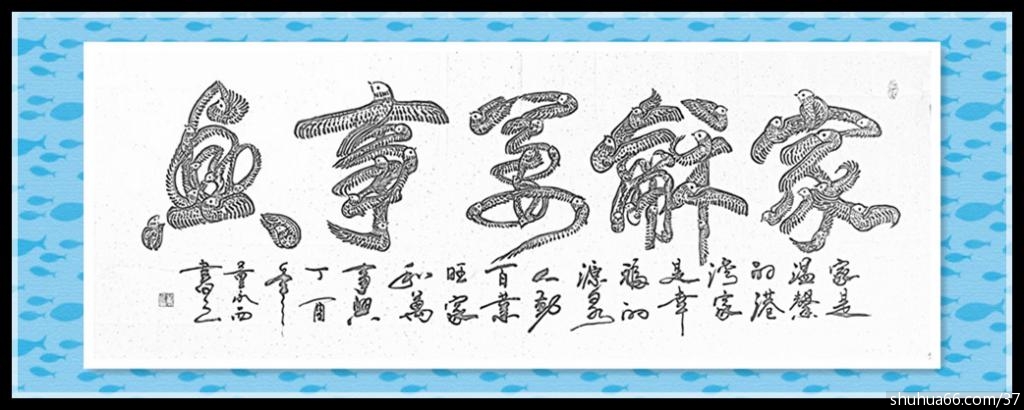 家龢萬事興
家是
温馨
的港
湾家
是幸
福的
源泉
人勤
百業
旺家
和萬
事興
丁酉
年
書之
shuhua66.com/37